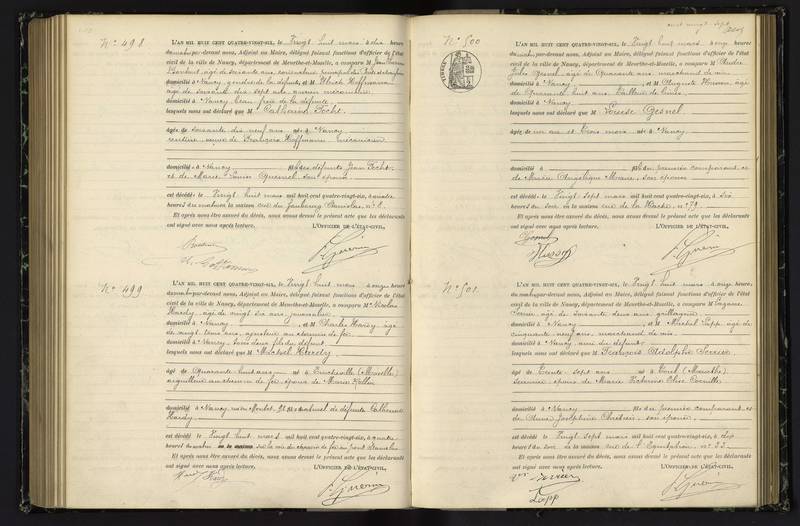 N° 498
L'AN MIL HUIT CENT QUATRE-VINGT-SIX, le Vingt huit mars à dix heures
du matin par-devant nous, Adjoint au Maire, délégué faisant fonctions d'officier de l'état
civil de la ville de Nancy, département de Meurthe-et-Moselle, a comparu M. Jean
âgé de soixante ans
domicilié à Nancy, gendre de la défunte, et M. Ulrich Hoffmann
âgé de soixante dix sept ans, ancien mécanicien
domicilié à Nancy beau frère de la défunte
lesquels nous ont déclaré que M Catherine Focht
âgée de soixante dix neuf ans née à Nancy
rentière veuve de François Hoffmann mécanicien
domiciliée à Nancy fille des défunts Jean Focht
et de Marie Louise Quesnel son épouse
est décédée le Vingt huit mars mil huit cent quatre-vingt-six, à quatre
heures du matin en la maison rue du faubourg Stanislas, n° 8
Et après nous être assuré du décès, nous avons dressé le présent acte que les déclarants
ont signé avec nous après lecture. L'OFFICIER DE L'ÉTAT-CIVIL,
N° 499
L'AN MIL HUIT CENT QUATRE-VINGT-SIX, le Vingt huit mars à onze heures
du matin par-devant nous, Adjoint au Maire, délégué faisant fonctions d'officier de l'état
civil de la ville de Nancy, département de Meurthe-et-Moselle, a comparu M. Nicolas
Hardy, âgé de vingt six ans, journalier
domicilié à Nancy, et M Charles Hardy, âgé
de vingt trois ans, ajusteur au chemin de fer
domicilié à Nancy, tous deux fils du défunt
lesquels nous ont déclaré que M Michel Hardy
âgé de Quarante huit ans né à (Moselle)
aiguilleur au chemin de fer, époux de Marie Keller
domicilié à Nancy, rue de Montet, fils naturel de défunte Catherine
Hardy
est décédé le Vingt huit mars mil huit cent quatre-vingt-six, à quatre
heures du matin sur la voie du chemin de fer au pont Stanislas
Et après nous être assuré du décès, nous avons dressé le présent acte que les déclarants
ont signé avec nous après lecture. L'OFFICIER DE L'ÉTAT-CIVIL,
N° 500
L'AN MIL HUIT CENT QUATRE-VINGT-SIX, le Vingt huit mars à onze heures
du matin par-devant nous, Adjoint au Maire, délégué faisant fonctions d'officier de l'état
civil de la ville de Nancy, département de Meurthe-et-Moselle, a comparu M. André
Jules Gesnel, âgé de Quarante ans, marchand de vin
domicilié à Nancy, et M Auguste Husson, âgé
de Quarante huit ans, tailleur de limes
domicilié à Nancy
lesquels nous ont déclaré que M Louise Gesnel
âgée de un an et trois mois née à Nancy
domiciliée à fille du premier comparant et
de Marie Angélique son épouse
est décédée le Vingt sept mars mil huit cent quatre-vingt-six, à six
heures du soir en la maison rue de la Hache, n° 79
Et après nous être assuré du décès, nous avons dressé le présent acte que les déclarants
ont signé avec nous après lecture. L'OFFICIER DE L'ÉTAT-CIVIL,
Husson
N° 501
L'AN MIL HUIT CENT QUATRE-VINGT-SIX, le Vingt huit mars à onze heures
du matin par-devant nous, Adjoint au Maire, délégué faisant fonctions d'officier de l'état
civil de la ville de Nancy, département de Meurthe-et-Moselle, a comparu M. Eugène
âgé de soixante deux ans
domicilié à Nancy, et M Michel Lapp, âgé de
cinquante neuf ans, marchand de vin
domicilié à Nancy, ami du défunt
lesquels nous ont déclaré que M. François Adolphe
âgé de trente sept ans né à Toul (Meurthe)
époux de Marie Elise
domicilié à Nancy fils du premier comparant et
de Anne Joséphine son épouse
est décédé le Vingt sept mars mil huit cent quatre-vingt-six, à dix
heures du soir en la maison rue de l'Equitation, n° 33
Et après nous être assuré du décès, nous avons dressé le présent acte que les déclarants
ont signé avec nous après lecture. L'OFFICIER DE L'ÉTAT-CIVIL,
Lapp